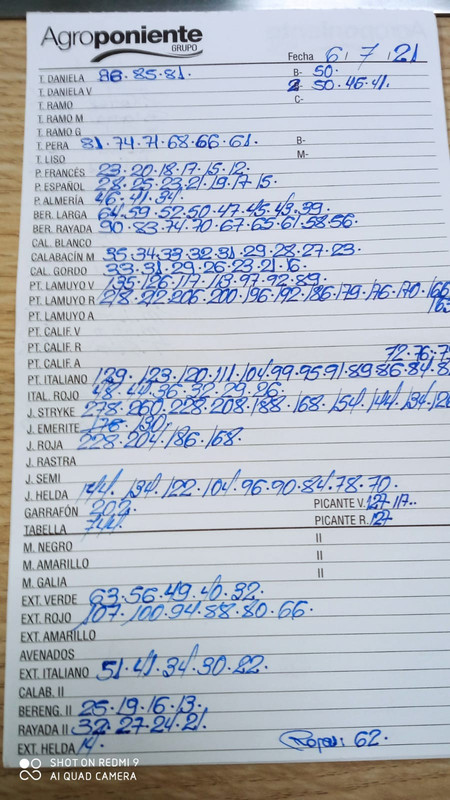 Agroponiente
GRUPO
Fecha 6 / 7 / 21
T. DANIELA 98. 85. 81. B- 50.
T. DANIELA V 2- 50. 45. 41.
T. RAMO C-
T. RAMO M
T. RAMO G
T. PERA 81. 74. 71. 68. 66. 61. B-
T. LISO M-
P. FRANCÉS 23. 20. 18. 17. 15. 12.
P. ESPAÑOL 28. 25. 23. 21. 19. 17. 15.
P. ALMERÍA 46. 41. 34.
BER. LARGA 64. 59. 52. 50. 47. 45. 43. 39.
BER. RAYADA 90. 83. 74. 70. 67. 65. 61. 58. 56.
CAL. BLANCO
CALABACÍN M 35. 34. 33. 32. 31. 29. 28. 27. 23.
CAL. GORDO 33. 31. 29. 26. 23. 21. 16.
PT. LAMUYO V 135. 126. 117. 113. 97. 92. 89.
PT. LAMUYO R 218. 212. 206. 200. 196. 192. 186. 179. 176. 170. 166
163
PT. LAMUYO A
PT. CALIF. V
PT. CALIF. R
PT. CALIF. A 72. 76.
PT. ITALIANO 129. 123. 120. 111. 104. 99. 95. 91. 89. 86. 84.
ITAL. ROJO 48. 42. 36. 32. 29. 26.
J. STRYKE 278. 260. 228. 208. 188. 168. 154. 144. 134.
J. EMERITE 176. 130.
J. ROJA 228. 204. 186. 168.
J. RASTRA
J. SEMI
J. HELDA 144. 134. 122. 104. 96. 90. 84. 78. 70.
GARRAFÓN 202. PICANTE V. 127. 117.
TABELLA 744. PICANTE R. 127
M. NEGRO II
M. AMARILLO II
M. GALIA II
EXT. VERDE 63. 56. 49. 40. 32.
EXT. ROJO 107. 100. 94. 88. 80. 66.
EXT. AMARILLO
AVENADOS
EXT. ITALIANO 51. 41. 34. 30. 22.
CALAB. II
BERENG. II 25. 19. 16. 13.
RAYADA II 32. 27. 24. 21.
EXT. HELDA 14. 62.
SHOT ON REDMI 9
AI QUAD CAMERA